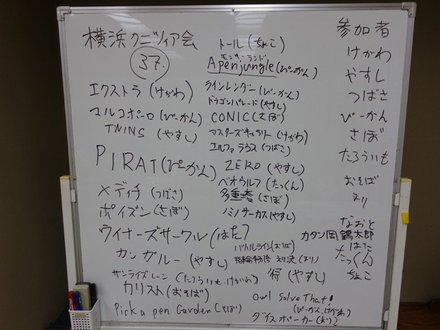 横浜クニツィア会
37
エクストラ (けがわ)
マルコポーロ (ぴーかん)
TWINS (やすし)
PIRAT (ぴーかん)
メディチ (つばさ)
ポイズン (さぼ)
ウイナーズサークル (はた)
カンガルー (やすし)
サンライズレーン (たろういも けがわ)
カリスト (おそば)
Pick a pen Garden (さぼ)
トール (ちょこ)
Apenjungle (ぴーかん)
ラインレンダー (ぴーかん)
ドラゴンパレード (やすし)
CONIC (さぼ)
マスターズギャラリー (けがわ)
エルファラウス (つばさ)
ZERO (やすし)
ベオウルフ (たっくん)
(さぼ)
ノミノサーカス (やすし)
バトルライン (おそば)
対決 (まり)
得 (やすし)
Owl Solve That!
(ぴーかん, けがわ)
ダイスポーカー (まり)
参加者
けがわ
やすし
つばさ
ぴーかん
さぼ
たろういも
おそば
まり
なおと
カタン岡鶴太郎
はた
たっくん
ちょこ